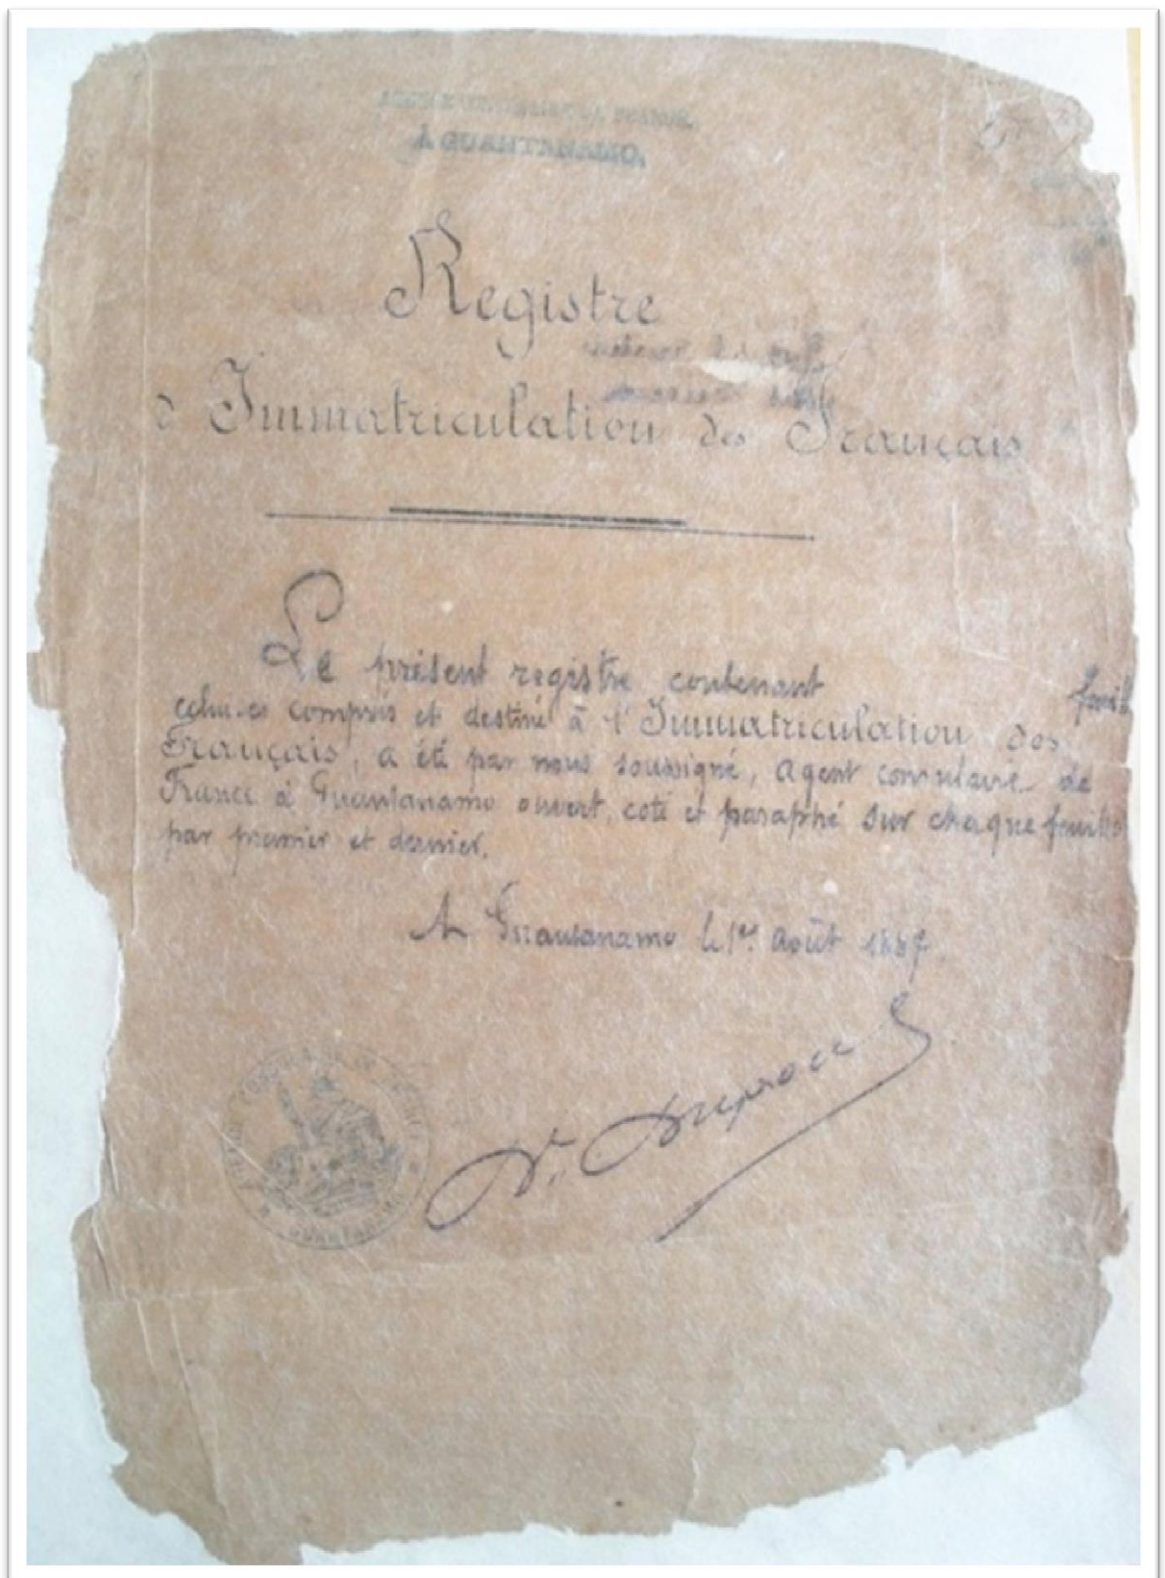 AGENCE CONSULAIRE DE FRANCE,
À GUANTANAMO.
Registre
d'Immatriculation des Français
Le présent registre contenant feuill
celui-ci compris et destiné à l'Immatriculation des
Français, a été par nous soussigné, agent consulaire de
France à Guantanamo ouvert, coté et paraphé sur chaque feuille
par premier et dernier.
A Guantanamo le 1er Août 1887.
GUANTANAMO